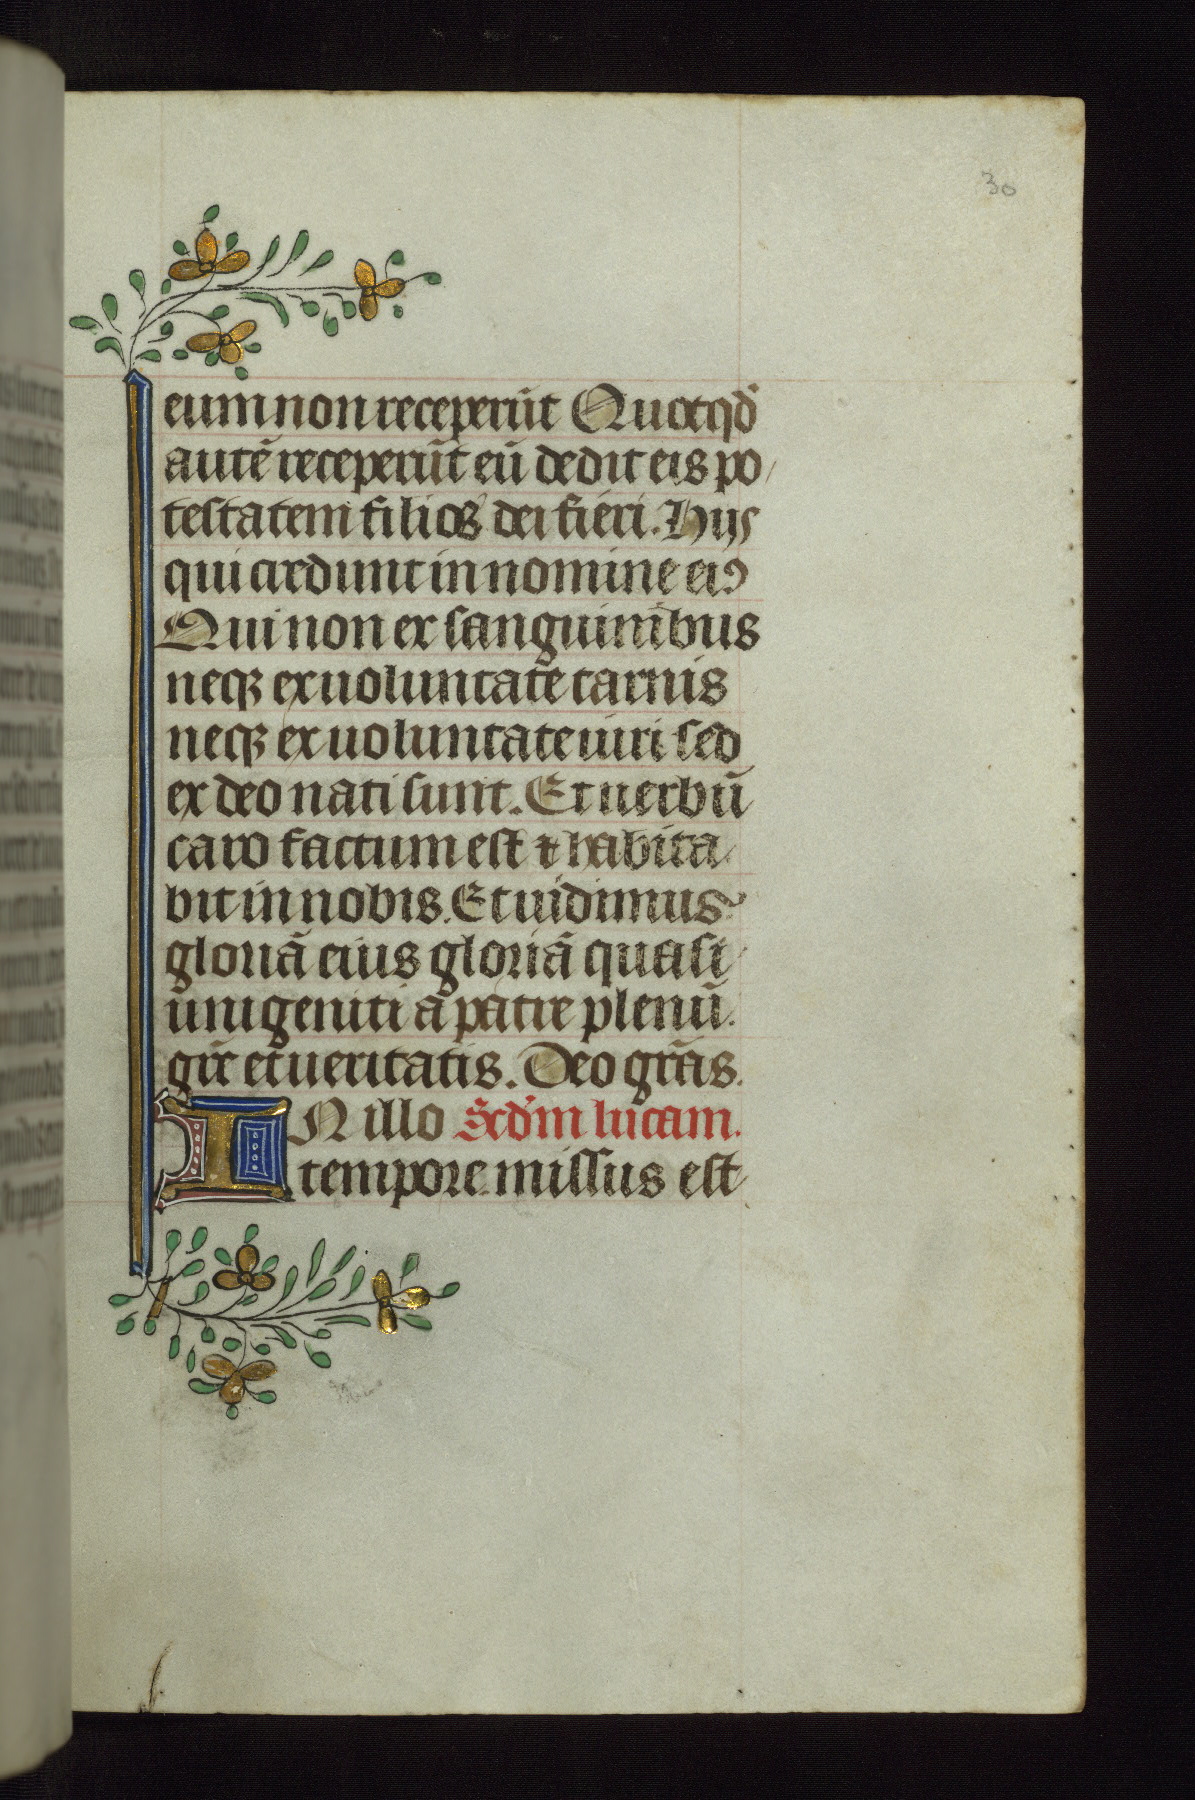 30
eum non receperūt Quotqd̕
autē receperūt eū dedit eis po
testatem filios dei fieri. Hijs
qui credunt in nomine eiꝰ
Qui non ex sanguinibus
neqꝫ ex uoluntate carnis
neqꝫ ex uoluntate uiri sed
ex deo nati sunt. Et uerbū
caro factum est ⁊ habita
bit in nobis. Et uidimus
gloriā eius gloriā quasi
unigeniti a patre plenū
gr̄e et ueritatis. Deo gr̄as.
IN illo Scd̕m lucam.
tempore missus est